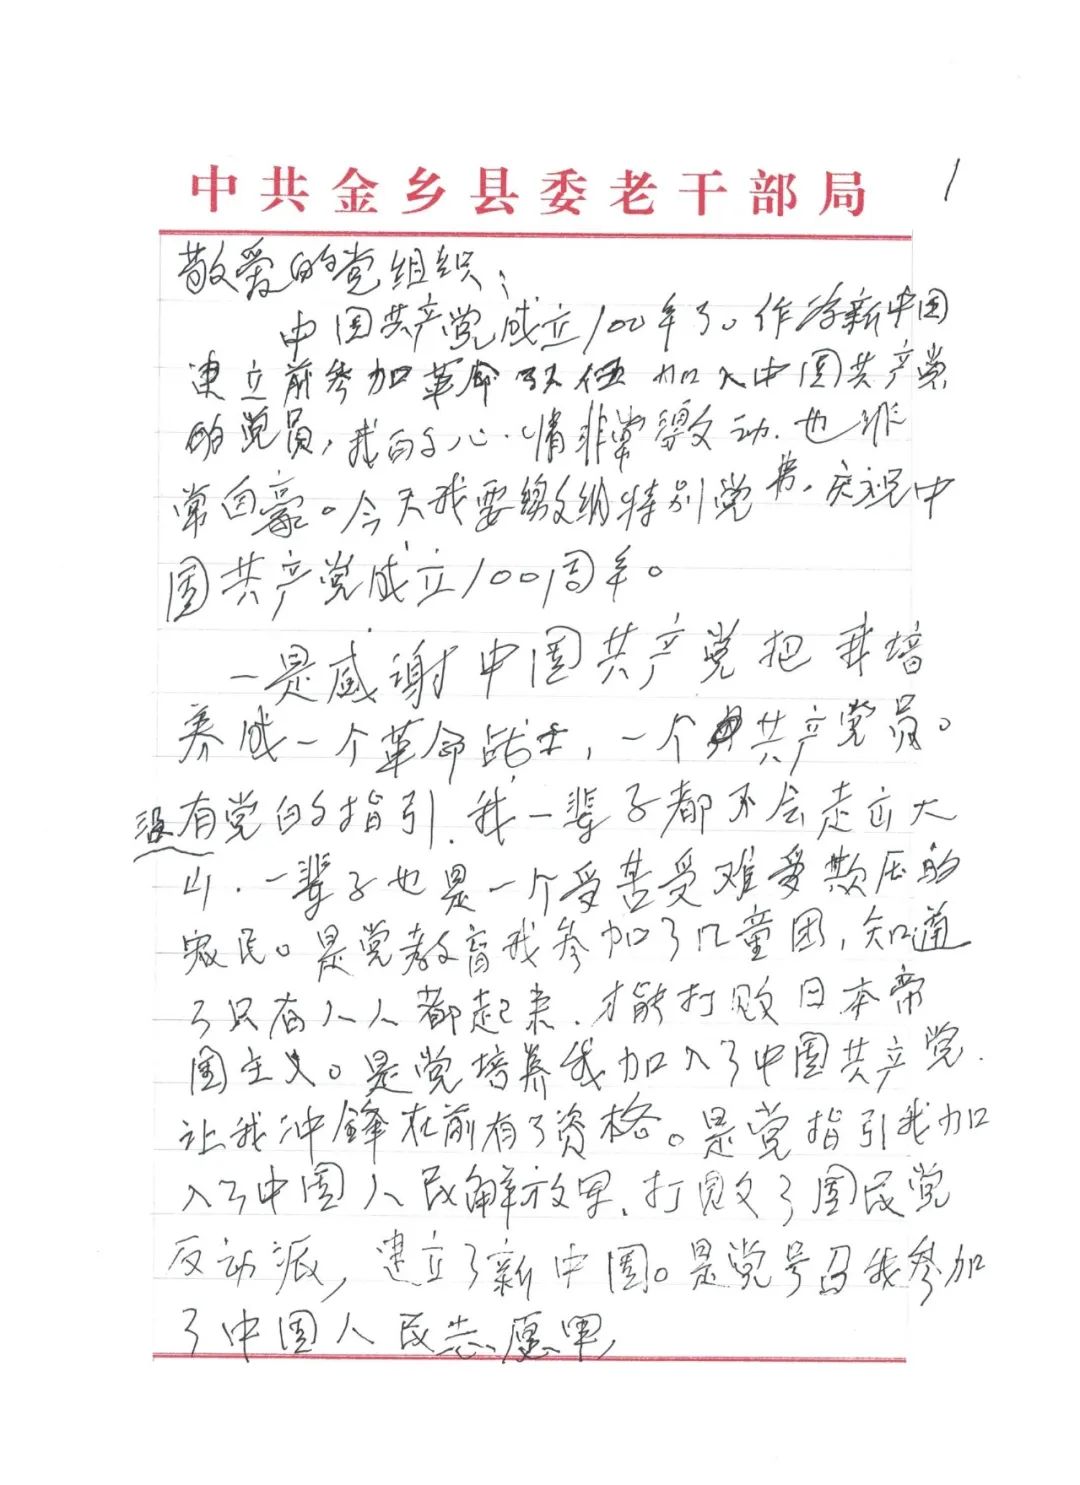 中共金乡县委老干部局
1
敬爱的党组织：
中国共产党成立100年了。作为新中国
建立前参加革命队伍加入中国共产党
的党员，我的心情非常激动.也非
常自豪。今天我要缴纳特别党费.庆祝中
国共产党成立100周年。
一是感谢中国共产党把我培
养成一个革命战士，一个共产党员。
没有党的指引.我一辈子都不会走出大
山.一辈子也是一个受苦受难受欺压的
农民。是党教育我参加了儿童团，知道
了只有人人都起来.才能打败日本帝
国主义。是党培养我加入了中国共产党.
让我冲锋在前有了资格。是党指引我加
入了中国人民解放军.打败了国民党
反动派，建立了新中国。是党号召我参加
了中国人民志愿军，